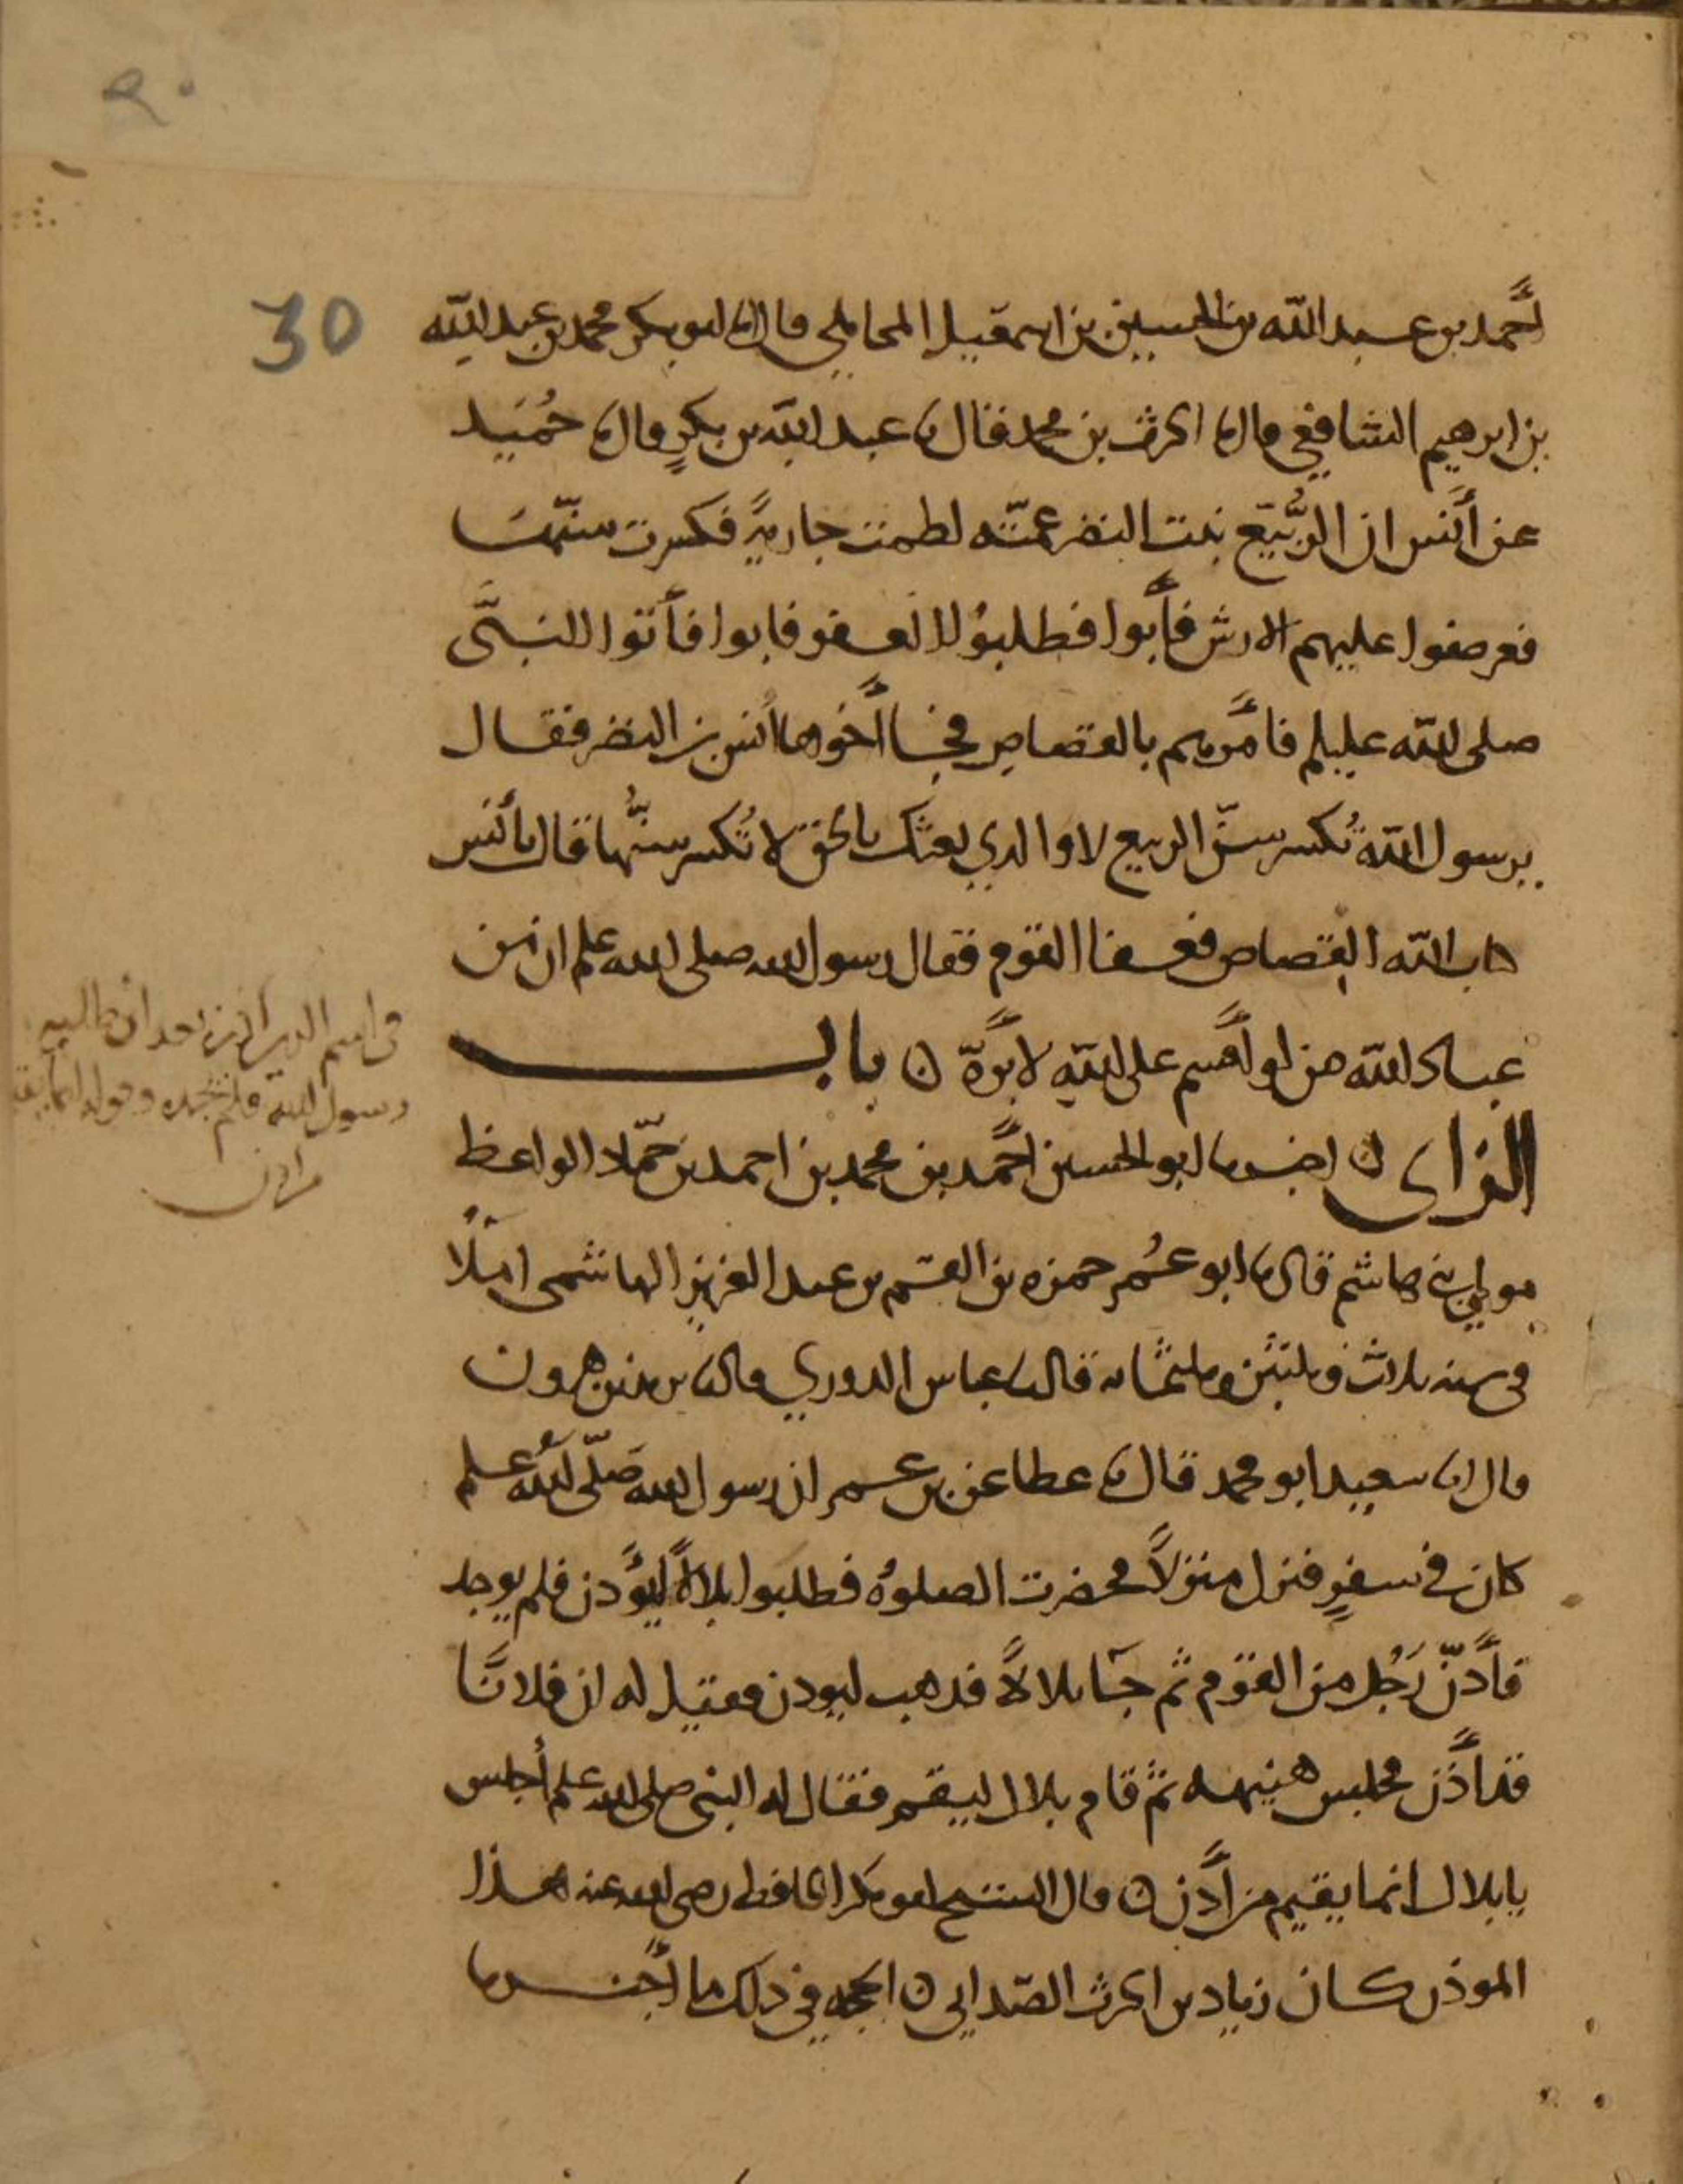 30
أحمد بن عبد الله بن الحسين بن اسمعيل المحاملي قال نا ابو بكر محمد بن عبد الله
بن ابرهيم الشافعي قال نا الحرث بن محمد قال نا عبد الله بن بكرٍ قال نا حُمَيد
عن أنس ان الرُّبَيّع بنت النضر عمّته لطمت جاريةً فكسرت سنّها
فعرضوا عليهم الارش فأبوا فطلبوُا العفو فابوا فأتوا النبيَّ
صلى الله عليلم فأمرهم بالقصاصِ فجا أخوها أنس بن النضر فقال
يرسول الله تُكسر سنّ الربيع لا والذي بعثك بالحق لا تُكسر سنُّها قال يأنس
كتاب الله القصاص فعفا القوم فقال رسول الله صلى الله علم ان من
عباد الله من لو أقسم على اللهِ لابَرَّهُ ن باب
الزاى ن اخبرنا ابو الحسين أحمد بن محمد بن احمد بن حمّاد الواعظ
مولى بني هاشم قال نا ابو عُمر حمزه بن القسم بن عبد العزيز الهاشمى املاً
فى سنه ثلاث وثلثين وثلثمائه قال نا عباس الدوري قال نا يزيد بن هرون
قال انا سعيد ابو محمد قال نا عطا عن بن عمر ان رسول الله صَلّى اللهُ علم
كان في سفرٍ فنزل منزلاً فحضرت الصلوهُ فطلبوا بلالاً ليؤذن فلم يوجد
فأذّن رَجُل من القوم ثم جآ بلالاً فذهب ليوذن فقيل له ان فلانًا
قد أذن فجلس هنيهه ثم قام بلال ليقيم فقال له النبى صلى الله علم أجلس
يا بلال انما يقيم من أذن ن قال الشيخ ابو بكر الحافظ رضى الله عنه هذا
الموذن كان زياد بن الحرث الصّدايى ن الحجه في ذلك ما أخبرنا
رسول الله فلم يجده وقوله انما يقيم
من اذن